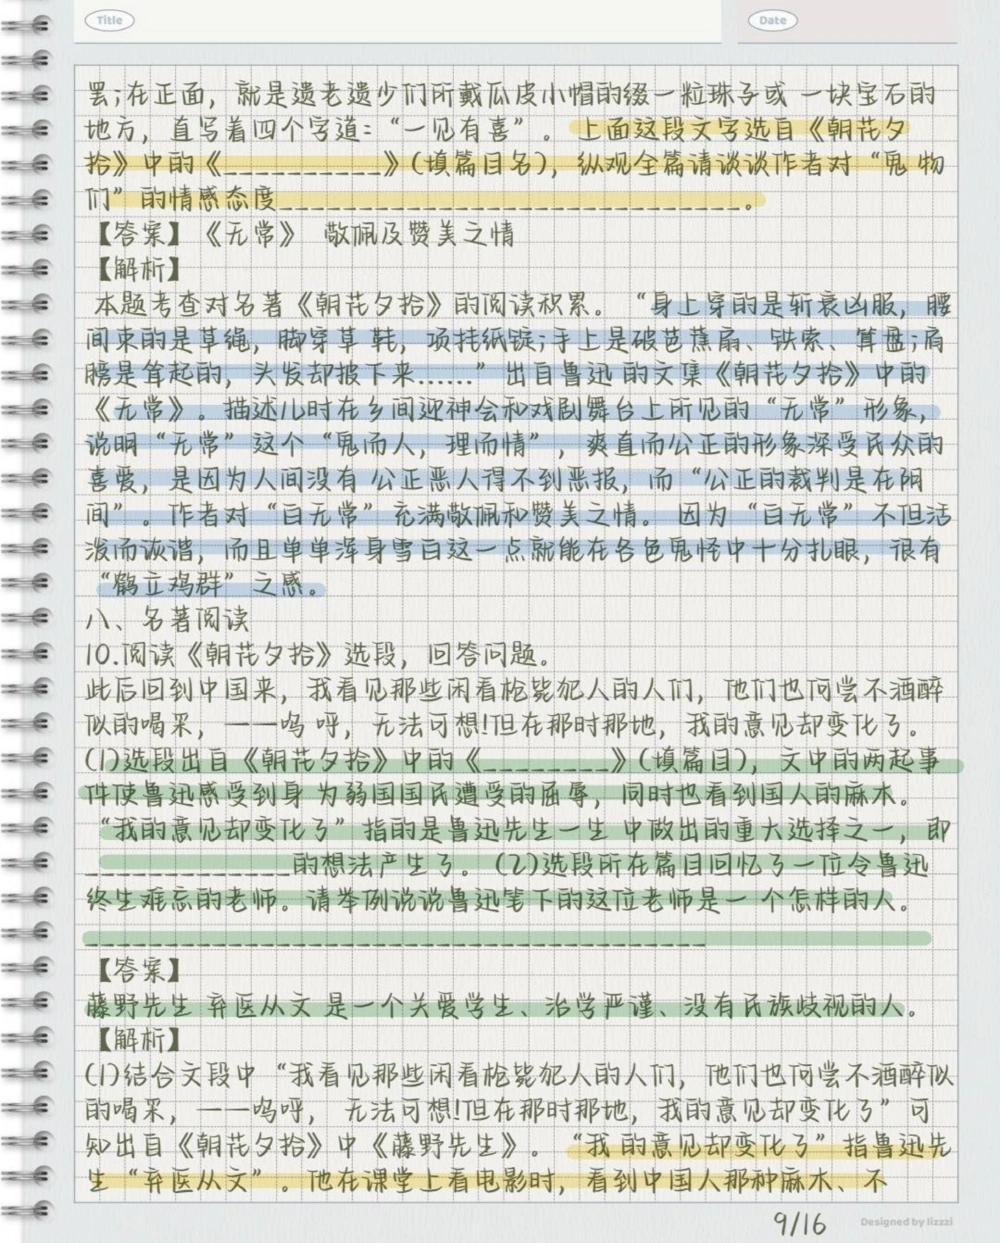 Title
Date
罢;在正面，就是遗老遗少们所戴瓜皮小帽的缀一粒珠子或 一块宝石的
地方，直写着四个字道:“一见有喜”。上面这段文字选自《朝花夕
拾》中的《__________》(填篇目名)，纵观全篇请谈谈作者对“鬼 物
们”的情感态度_____________________________。
【答案】《无常》 敬佩及赞美之情
【解析】
本题考查对名著《朝花夕拾》的阅读积累。“身上穿的是斩衰凶服，腰
间束的是草绳，脚穿草 鞋，项挂纸锭;手上是破芭蕉扇、铁索、算盘;肩
膀是耸起的，头发却披下来……”出自鲁迅 的文集《朝花夕拾》中的
《无常》。描述儿时在乡间迎神会和戏剧舞台上所见的“无常”形象，
说明“无常”这个“鬼而人，理而情”，爽直而公正的形象深受民众的
喜爱，是因为人间没有 公正恶人得不到恶报，而“公正的裁判是在阴
间”。作者对“白无常”充满敬佩和赞美之情。因为“白无常”不但活
泼而诙谐，而且单单浑身雪白这一点就能在各色鬼怪中十分扎眼，很有
“鹤立鸡群”之感。
八、名著阅读
10.阅读《朝花夕拾》选段，回答问题。
此后回到中国来，我看见那些闲看枪毙犯人的人们，他们也何尝不酒醉
似的喝采，——呜 呼，无法可想!但在那时那地，我的意见却变化了。
(1)选段出自《朝花夕拾》中的《________》(填篇目)，文中的两起事
件使鲁迅感受到身 为弱国国民遭受的屈辱，同时也看到国人的麻木。
“我的意见却变化了”指的是鲁迅先生一生 中做出的重大选择之一，即
_____________的想法产生了。(2)选段所在篇目回忆了一位令鲁迅
终生难忘的老师。请举例说说鲁迅笔下的这位老师是一 个怎样的人。
_______________________________________
【答案】
藤野先生 弃医从文 是一个关爱学生、治学严谨、没有民族歧视的人。
【解析】
(1)结合文段中“我看见那些闲看枪毙犯人的人们，他们也何尝不酒醉似
的喝采，——呜呼， 无法可想!但在那时那地，我的意见却变化了”可
知出自《朝花夕拾》中《藤野先生》。“我 的意见却变化了”指鲁迅先
生“弃医从文”。他在课堂上看电影时，看到中国人那种麻木、不
9/16
Designed by lizzzi